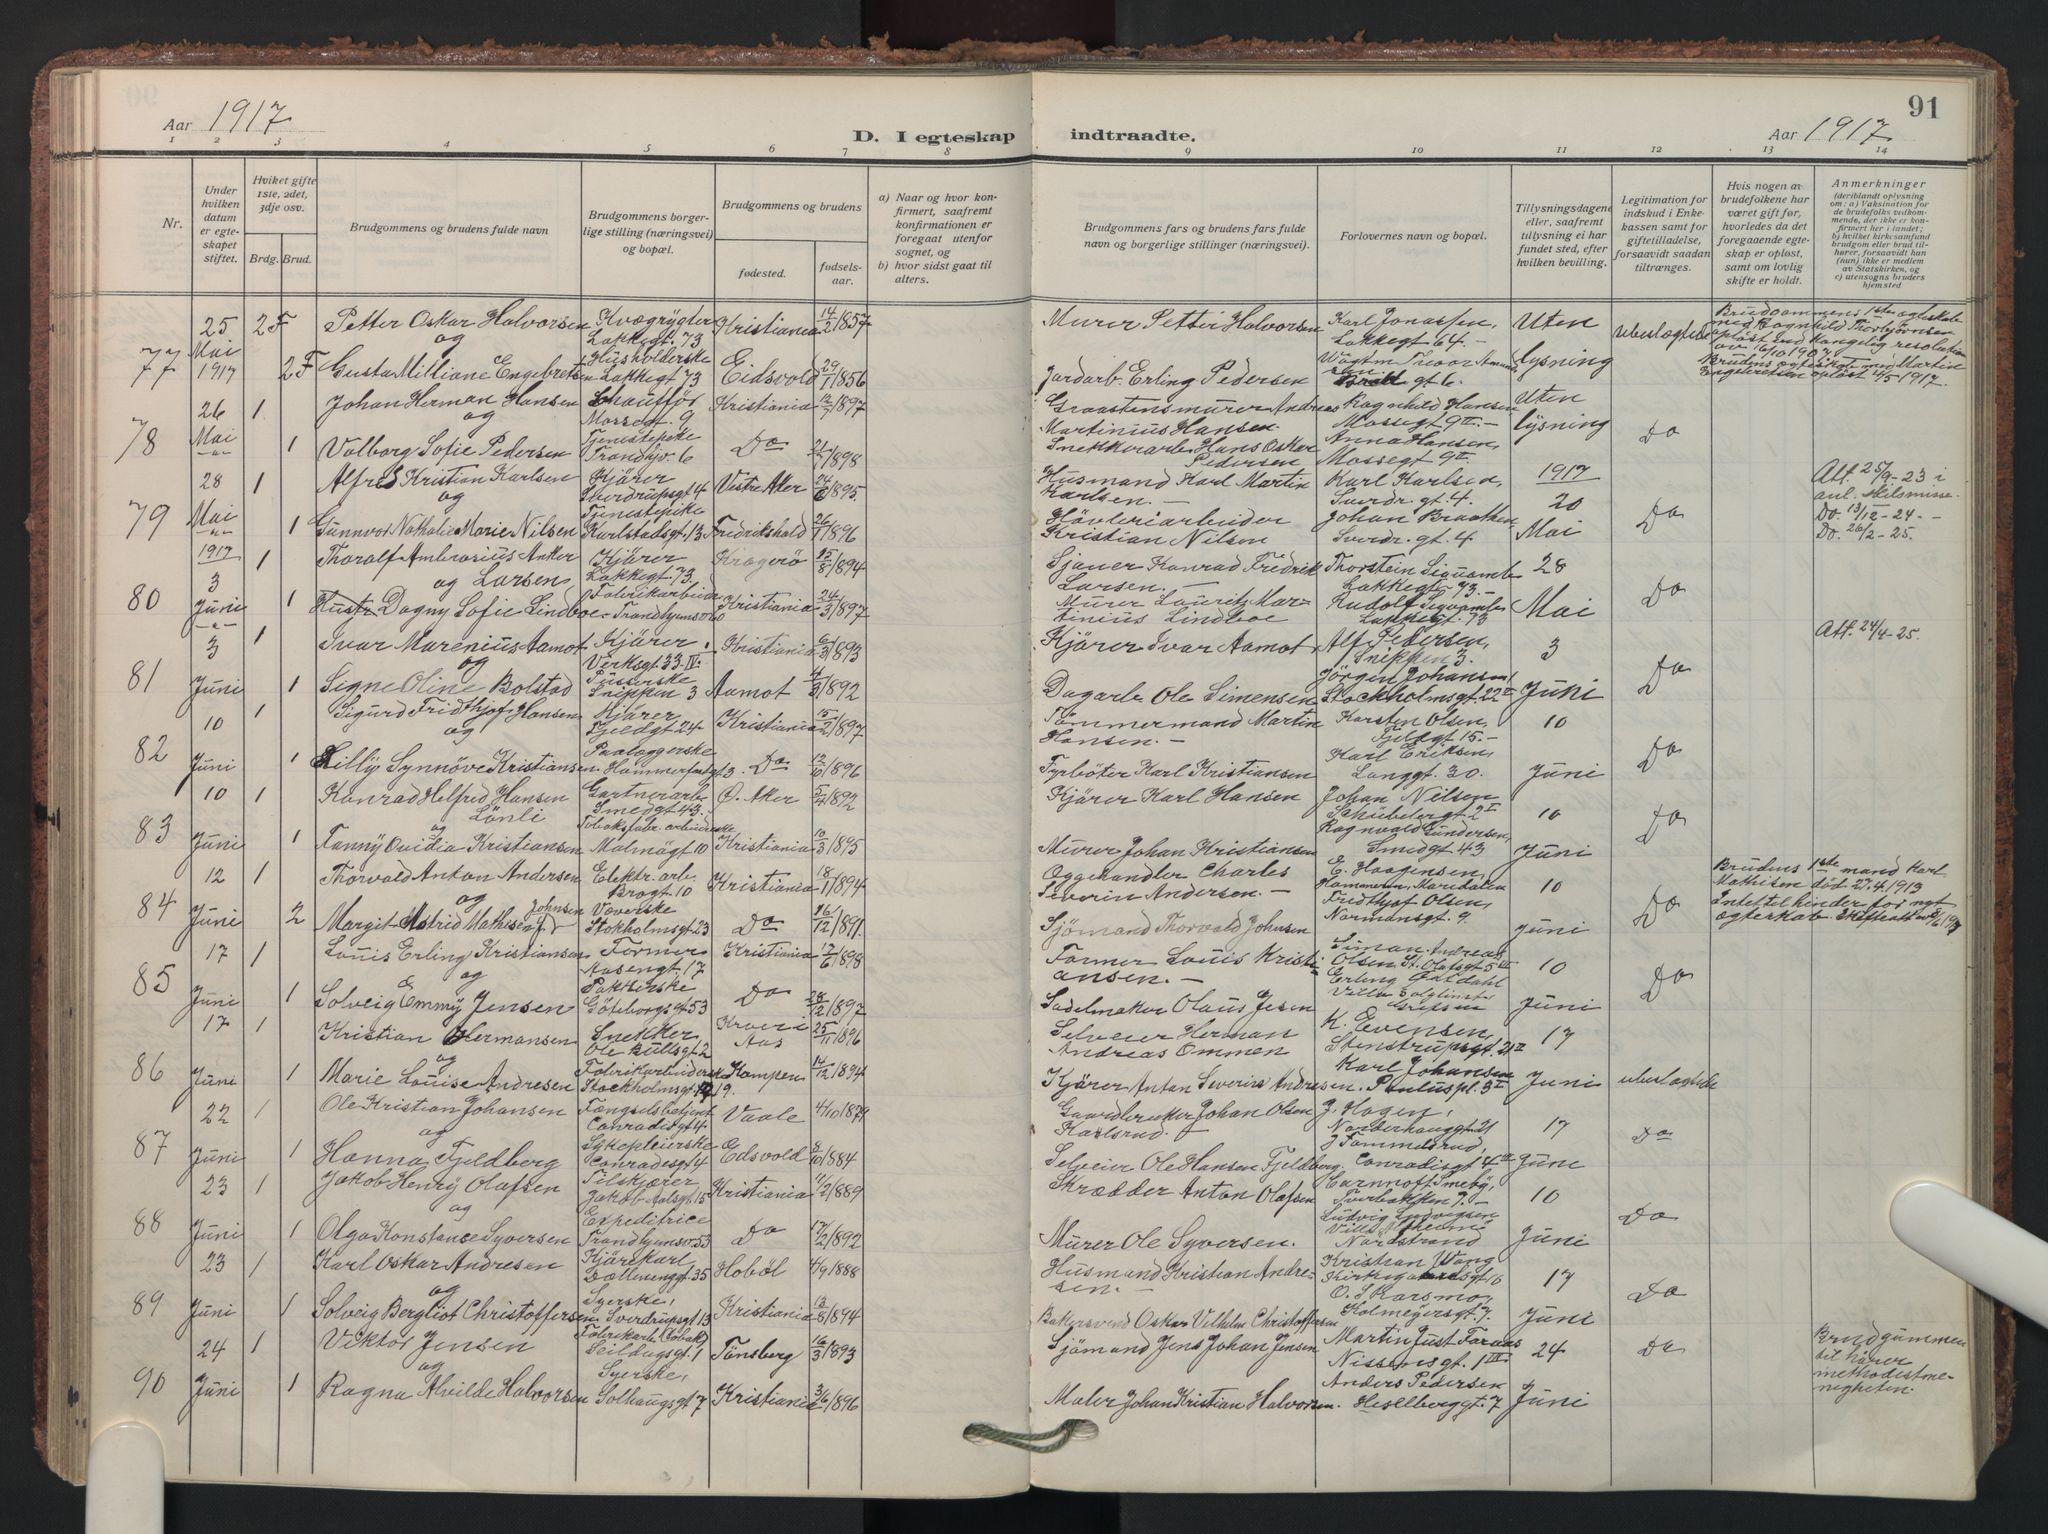 91
Aar 1917
D. I egteskap indtraadte.
Aar 1917
1 2 3 4 5 6 7 8 9 10 11 12 13 14
Nr.
Under hvilken datum er egteskapet stiftet.
Hvilket gifte 1ste, 2det, 3dje osv.
Brdg. Brud.
Brudgommens og brudens fulde navn
Brudgommens borgerlige stilling (næringsvei) og bopæl.
Brudgommens og brudens
fødested.
fødselsaar.
a) Naar og hvor konfirmert, saafremt konfirmationen er foregaat utenfor sognet, og
b) hvor sidst gaat til alters.
Brudgommens fars og brudens fars fulde navn og borgerlige stillinger (næringsvei).
Forlovernes navn og bopæl.
Tillysningsdagene eller, saafremt tillysning ei har fundet sted, efter hvilken bevilling.
Legitimation for indskud i Enkekassen samt for giftetilladelse, forsaavidt saadan tiltrænges.
Hvis nogen av brudefolkene har været gift før, hvorledes da det foregaaende egteskap er opløst, samt om lovlig skifte er holdt.
Anmerkninger
(deriblandt oplysning om: a) Vaksination for de brudefolks vedkommende, der ikke er konfirmert her i landet; b) hvilket kirkesamfund brudgom eller brud tilhører, forsaavidt han (hun) ikke er medlem av Statskirken, og c) utensogns bruders hjemsted
77 25 Mai 1917 2F Petter Oskar Halvorsen Kvægrygter Lakkegt 73 Kristiania 14/2 1857 Murer Petter Halvorsen Karl Jonassen, Lakkegt 64. Uten lysning ubeslægtede
og
2F Gusta Milliane Engebretsen Husholderske Lakkegt 73 Eidsvold 29/1 1856 Jordarb. Erling Pedersen
Brudgommens 1ste egteskab med Ragnhild Thorbjørnsen opløst ved kongelig resolution av 16/10 1907. Brudens egteskab med Martin Engebretsen opløst 1917.
78 26 Mai 1 Johan Herman Hansen Chauffør Mossegt. 9 Kristiania 1897 Graastensmurer Andreas Martinius Hansen. Ragnhild Hansen Mossegt 9 II. Uten lysning Do
og
1 Valborg Sofie Pedersen Tjenestepike Trondhjv. 6 Do 1898 Snekkerarb. Hans Oskar Pedersen Anna Hansen, Mossegt 9 II
79 28 Mai 1 Alfred Kristian Karlsen Kjører Sverdrupsgt 4 Vestre Aker 1895. Husmand Karl Martin Karlsen. Karl Karlsen, Sverdr. gt. 4. 1917 20 Mai Do
og
1 Gunnvor Nathalie Marie Nilsen Tjenestepike Karlstadsgt. 13 Fredrikshald 26/1 1896 Høvleriarbeider Kristian Nilsen Johan Braathen Sverdr. gt. 4
Att. 25/9-23 i anl. skilsmisse. Do. 13/12-24. Do. 26/2-25.
80 1917 3 Juni 1 Thoralf Ambrosius Anker Larsen Kjører Lakkegt. 73. Kragerø 15/8 1894 Sjauer Konrad Fredrik Larsen. Thorstein Lakkegt. 73. 28 Mai Do
og
1 Dagny Sofie Lindboe Fabrikarbeider Kristiania 24/3 1897 Murer Lauritz Martinius Lindboe Rudolf Lakkegt. 73
81 3 Juni 1 Ivar Marenius Aamot Kjører. Verksgt 33. IV. Kristiania 1893 Kjører Ivar Aamot Alf Pedersen, Snippen 3. 3 Juni Do
og
1 Signe Oline Bolstad Pusserske Snippen 3 Aamot 1892 Dagarb. Ole Simensen Jørgen Johansen, Stockholmsgt 22 II
Att. 24/4-25.
82 10 Juni 1 Sigurd Fridthjof Hansen Kjører Fjeldgt 24 Kristiania 15/2 1897 Tømmermand Martin Hansen. Karsten Olsen, Fjeldgt 15. 10 Juni Do
og
1 Lilly Synnøve Kristiansen. Paalæggerske Hammerfestgt 3. Do 12/10 1896 Fyrbøter Karl Kristiansen Karl Eriksen, Langgt. 30.
83 10 Juni 1 Konrad Helfred Hansen Lønli Gartnerarb. Smedgt 43. Ø. Aker 5/4 1892 Kjører Karl Hansen Johan Nilsen Schübelergt 2 I 10 Juni Do
og
1 Fanny Ovidia Kristiansen Tobaksfabr. arbeiderske Malmøgt 10 Kristiania 10/3 1895 Murer Johan Kristiansen Ragnvald Gundersen, Smedgt 43
84 12 Juni 1 Thorvald Anton Andersen Elektr. arb. Brogt. 10 Kristiania 18/1 1894 Oggehandler Charles Severin Andersen. E. Haagensen, Hammeren, Maridalen 10 Juni Do
og
2 Margit Astrid Mathisen f. Johnsen Væverske Stokholmsgt 23 Do 16/12 1891. Sjømand Thorvald Johnsen Fridthjof Olsen, Normansgt. 9
Brudens 1ste mand Karl Mathisen død 27.4.1913 Intet til hinder for nyt ægteskab.
85 17 Juni 1 Louis Erling Kristiansen Former Aasengt. 17 Kristiania 17/6 1898 Former Louis Kristiansen. Simon Andreas Olsen St. Olafsgt 5 III 10 Juni Do
og
1 Solveig Emmy Jensen Pakkerske Gøteborgsgt 53 Do 28/12 1897 Sadelmaker Olaus Jesen Erling
86 17 Juni 1 Kristian Hermansen Snekker Ole Bullsgt 2 Kroer i Aas 25/11 1896 Selveier Herman Andreas Ommen K. Evensen, Stenstrupsgt. 21 II 17 Juni ubeslægtede
og
1 Marie Louise Andresen Fabrikarbeiderske Stockholmsgt 19. Kampen 14/12 1894 Kjører Anton Severin Andresen. Karl Johansen Pauluspl. 3 I
87 22 Juni 1 Ole Kristian Johansen Fængselsbetjent Conradisgt 4 Vaale 4/10 1879 Gaardbruker Johan Olsen Karlsrud. J. Hagen, Norderhauggt 21 17 Juni Do
og
1 Hanna Fjeldberg Sykepleierske Conradisgt 4 Edsvold 8/10 1884 Selveier Ole Hansen Fjeldberg. J Tømmelsrud, Conradisgt 4
88 23 Juni 1 Jakob Henry Olafsen Tilskjærer Jakob Aalsgt 15 Kristiania 11/2 1889 Skrædder Anton Olafsen Smeby, Tverbakken 9. 10 Juni Do
og
1 Olga Konstance Syversen Expeditrice Trondhjemsv 53 Do 17/2 1892 Murer Ole Syversen. Ludvig Ludvigsen Nordstrand
89 23 Juni 1 Karl Oskar Andresen Kjørekarl Dælenenggt. 35 Hobøl 4/9 1888 Husmand Kristian Andresen. Kristian Wang Kirkegaardsgt 16 17 Juni Do
og
1 Solveig Bergliot Christoffersen Syerske, Sverdrupsgt 13 Kristiania 13/8 1894 Bakersvend Oskar Vilhelm Christoffersen O. S. Karsmo, Holmeyersgt. 7.
90 24 Juni 1 Viktor Jensen Fabrikarb. (Tobak) Seildugsgt. 1 Tønsberg 16/3 1893 Sjømand Jens Johan Jensen Martin Just Nissensgt. 1 III. 24 Juni Do
og
1 Ragna Alvilde Halvorsen Syerske, Solhaugsgt 7 Kristiania 3/6 1896 Maler Johan Kristian Halvorsen. Anders Pedersen Heselberggt. 7
Brudgummen tilhører methodistmenigheten.